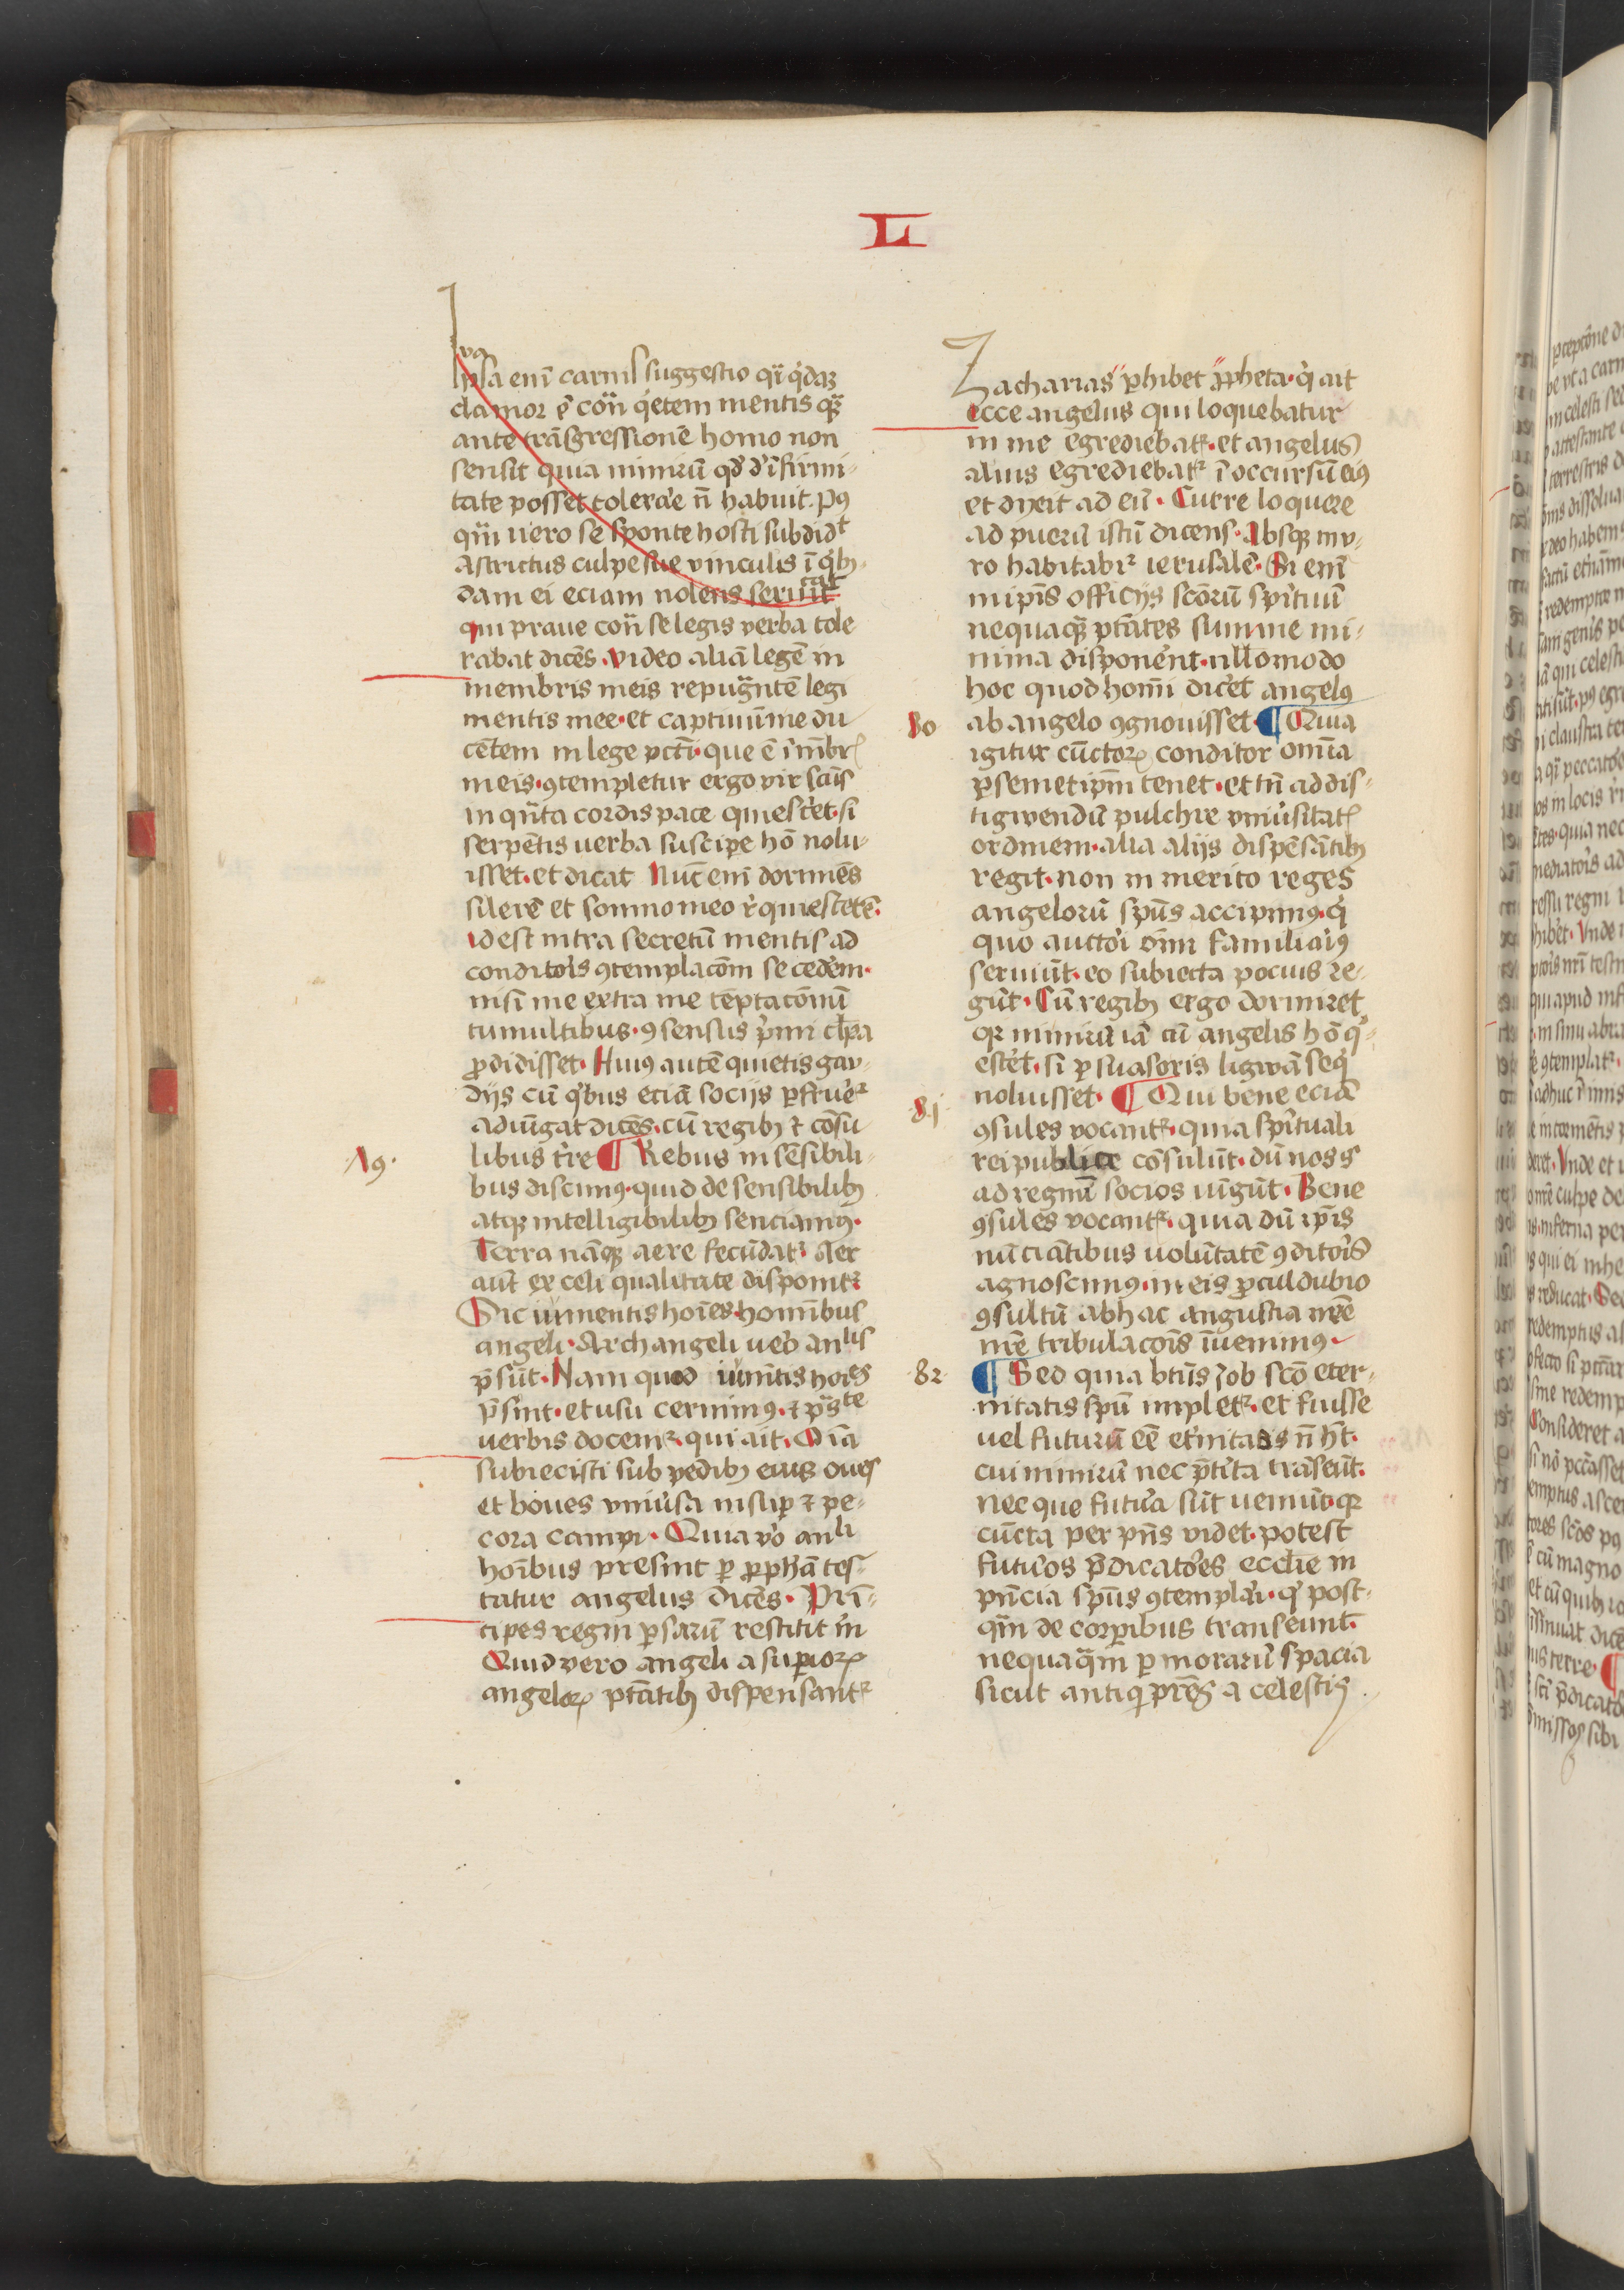 L
va
Ipsa enī carnis suggestio qi q̇dā
clamor ē cōn q̇etem mentis quē
ante trāsgressionē homo non
sensit quia nimirū qd̄ d' īfirmi-
tate posset tolerāe n̄ habuit. Pꝰ
q̄m uero se sponte hosti subdidᵗ
astrictus culpe sue vinculis ī qͥbꝫ-
dam ei eciam nolens seruit
qui praue cōn se legis verba tole
rabat dicēs. Video aliā legē in
membris meis repugn̄tē legi
mentis mee. et captiuū me du
cētem in lege pcti. que ē ī mēbrꝭ
meis. ꝯtempletur ergo vir sc̄us
in qn̄ta cordis pace quiesc'et. si
serpētis uerba suscipe hō nolu-
isset. et dicat Nūc enī dormiēs
silerē et somno meo r̄quiescerē.
id est intra secretū mentis ad
conditoīs ꝯtemplacōm secedēm.
nisi me extra me tēptacōnū
tumultibus. ꝯsensus pīmi clp̄a
ꝓdidisset. Huiꝰ autē quietis gau-
dijs cū qͥbus eciā socijs pfrueᷣ
adiūgat dicēs. cū regibꝫ ⁊ cōsu
79.
libus t̄re ¶ Rebus insēsibili-
bus discimꝰ. quid de sensibilibꝫ
atqꝫ intelligibilibꝫ senciamꝰ.
Terra nāqꝫ aere fecūdatᷣ Aer
aūt ex celi qualitate disponitᷣ
Sic iumentis hoīes. hominībus
angeli. Archangeli ueō anlis
p̄sūt. Nam quod iumītis hoīes
p̄sint. et usu cernimꝰ. ⁊ pˢˡte
uerbis docemᷣ. qui ait. Oīa
subiecisti sub pedibꝫ eius oues
et boues vniūsa insup ⁊ pe-
cora campi. Quia v̊o anli
hoībus presint ꝑ ꝓphā tes-
tatur angelus dicēs. Prī-
cipes regni psarū restitit m̄
Quid vero angeli a supiorꝝ
angelorꝝ ptātibꝫ dispensantᷣ
Zacharias ꝓhibet ꝓpheta. q̇ ait
Ecce angelus qui loquebatur
in me egrediebatᷣ. et angelus
alius egrediebatᷣ ī occursū eiꝰ
et dixit ad eū. Curre loquere
ad puerū istū dicens. Absqꝫ mu-
ro habitabiᷣ ierusalē. Si enī
in ip̄is officijs scōrū spītuū
nequaqꝫ ptātes summe mi-
nima disponēnt. nullomodo
hoc quod homī dicēt angelꝰ
80
ab angelo ꝯgnouisset. ¶ Quia
igitur cūctorꝝ conditor omīa
ꝑ semetipm̄ tenet. et tn̄ ad dis-
tigwendū pulchre vniūsitatꝭ
ordinem. alia alijs dispēsātibꝫ
regit. non inmerito reges
angelorū spūs accipimꝰ. q̇
quo auctoī oīm familiaīꝰ
seruiūt. eo subiecta pocius re-
gūt. Cū regibꝫ ergo dormiret
qꝛ nimirū iā cū angelis hō q̇-
escēt. si ꝑsuasoris ligwā seq̇
81
noluisset. ¶ Qui bene eciā
ꝯsules vocantᷣ. quia spītuali
reipublice cōsulūt. dū nos s'
ad regnū socios iūgūt. Bene
ꝯsules vocantᷣ. quia dū ip̄is
nūciātibus uolūtatē ꝯditoīs
agnoscimꝰ. in eis ꝓculdubio
ꝯsultū ab hac angustia nr̄e
nr̄e tribulacoīs īuenimꝰ.
82
¶ Sed quia btūs Job scō eter-
nitatis spū impletᷣ. et fuisse
uel futurū eē et'nitatis n̄ hꝫt.
cui nimirū nec p̄t'ita trāseūt.
nec que futūa sūt ueniūt. qꝛ
cūcta per pn̄s videt. potest
futūos p̄dicatōes ecclie in
pn̄cia spūs ꝯtemplaī. q̇ post-
q̄m de corꝑibus transeunt.
nequaq̄m ꝑ morarū spacia
sicut antiq̇ pr̄es a celestiꝭ